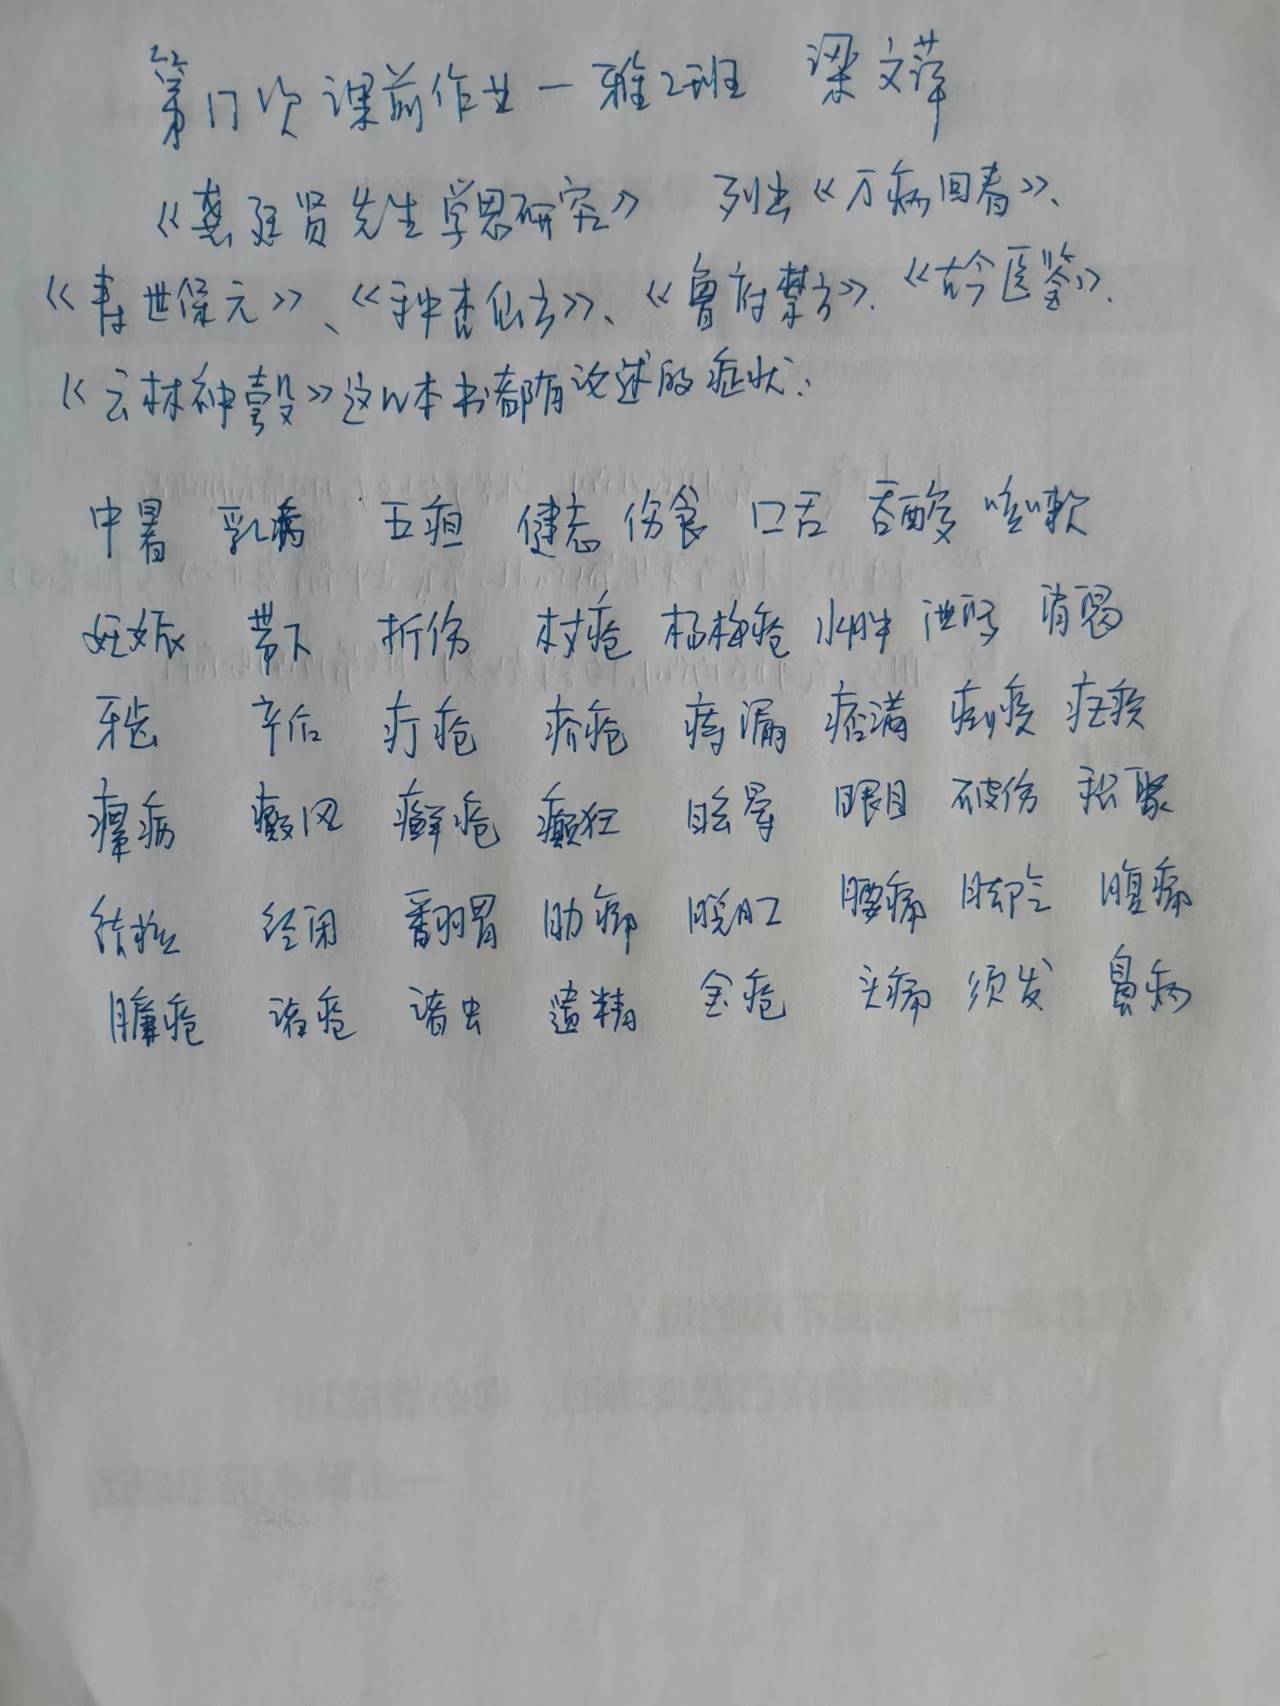 第17次课前作业一雅2班 梁文萍
《龚廷贤先生学思研究》 列出《万病回春》、
《寿世保元》、《种杏仙方》、《鲁府禁方》、《古今医鉴》、
《云林神彀》这6本书都有论述的症状：
中暑 乳病 五疸 健忘 伤食 口舌 吞酸 咳嗽
妊娠 带下 折伤 杖疮 杨梅疮 水肿 泄泻 消渴
牙齿 产后 疔疮 疥疮 痔漏 痞满
瘰疬 癜风 癣疮 癫狂 眩晕 眼目 破伤 积聚
经闭 翻胃 胁痛 脱肛 腰痛 脚气 腹痛
臁疮 诸疮 诸虫 遗精 金疮 头痛 须发 鼻病